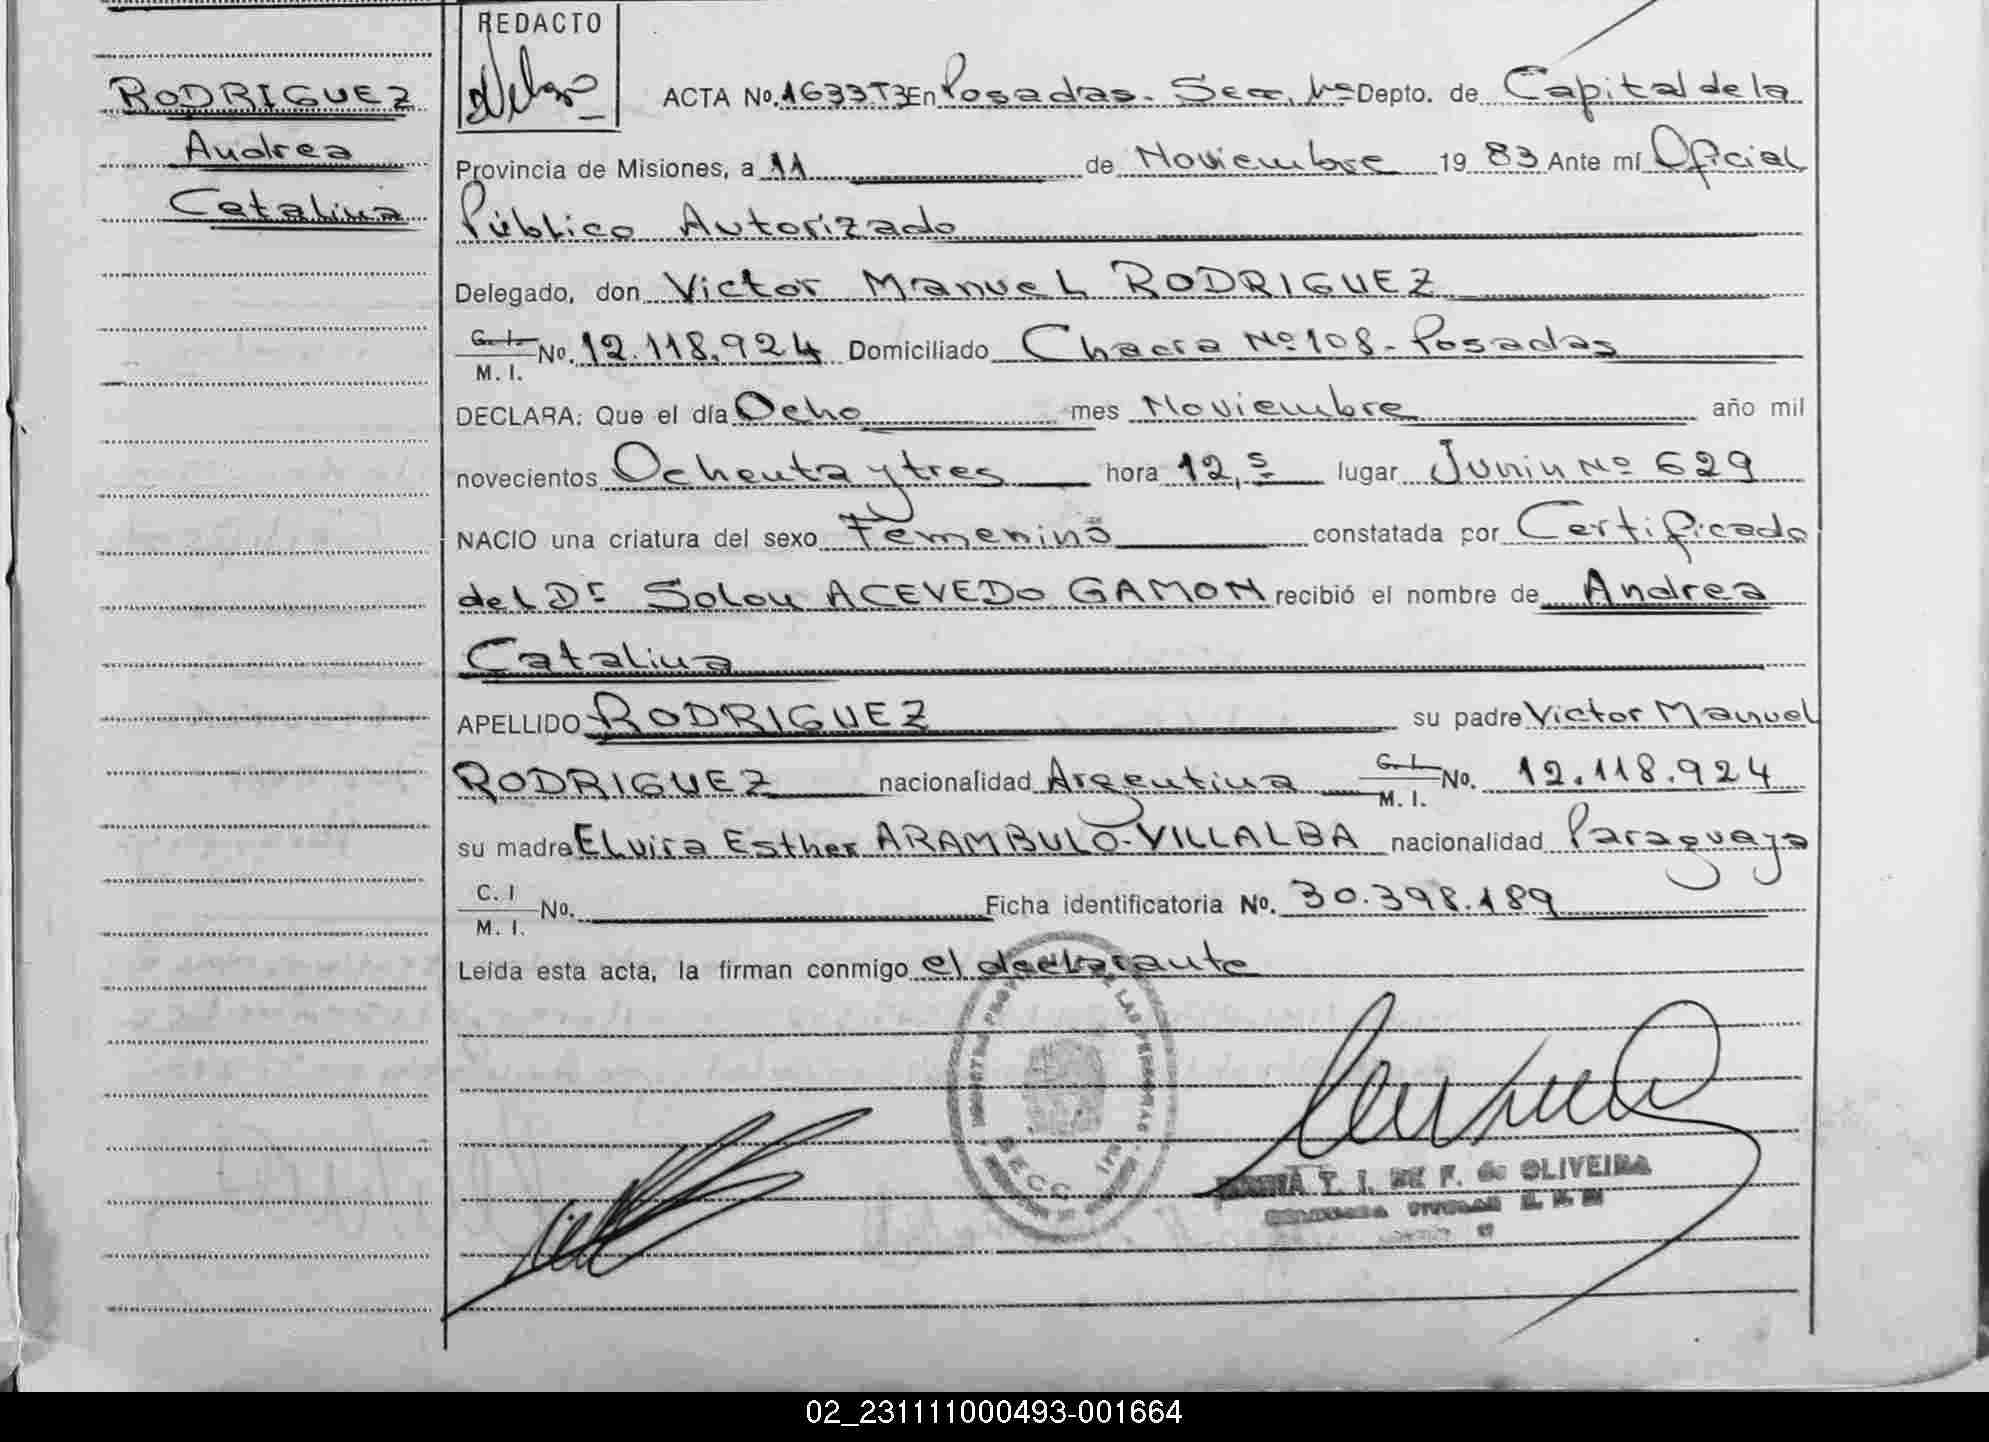 REDACTO
RODRIGUEZ
Andrea
Catalina
ACTA No. 1633 T3 En Posadas. Secc. 1ª Depto. de Capital de la
Provincia de Misiones, a 11 de Noviembre 1983 Ante mí Oficial
Público Autorizado
Delegado, don Victor Manuel RODRIGUEZ
C. I. M. I. No. 12.118.924 Domiciliado Chacra Nº 108 - Posadas
DECLARA: Que el día Ocho mes Noviembre año mil
novecientos Ochenta y tres hora 12,5 lugar Junin Nº 629
NACIO una criatura del sexo Femenino constatada por Certificado
del Dr Solon ACEVEDO GAMON recibió el nombre de Andrea
Catalina
APELLIDO RODRIGUEZ su padre Victor Manuel
RODRIGUEZ nacionalidad Argentina C. I. M. I. No. 12.118.924
su madre Elvira Esther ARAMBULO-VILLALBA nacionalidad Paraguaya
C. I M. I. No. Ficha identificatoria No. 30.398.189
Leída esta acta, la firman conmigo el declarante
LAS PERSONAS
SECC
T. I. DE F. de OLIVEIRA
02_231111000493-001664